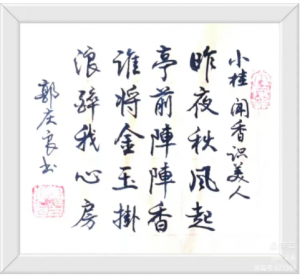 小桂闻香识美人
昨夜秋风起
亭前阵阵香
谁将金玉掛
浪醉我心房
郭庆良书